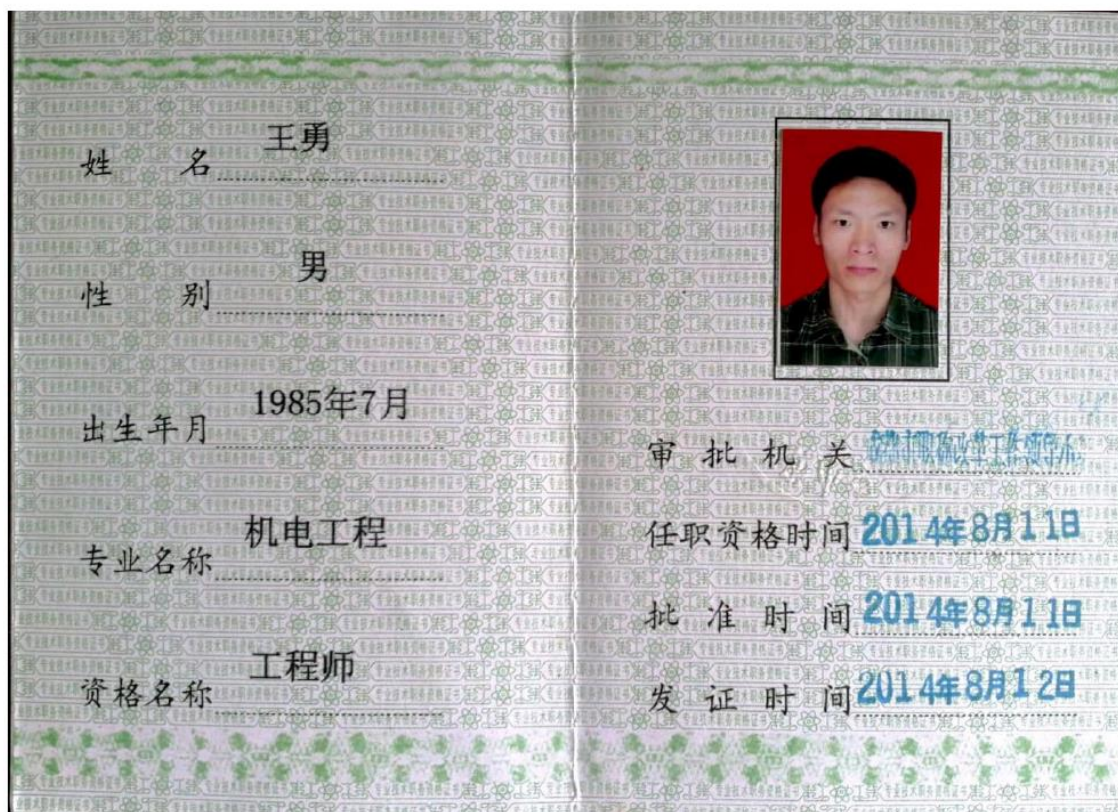 姓名 王勇
性别 男
出生年月 1985年7月
专业名称 机电工程
资格名称 工程师
审批机关 职称改革工作领导小
任职资格时间 2014年8月11日
批准时间 2014年8月11日
发证时间 2014年8月12日